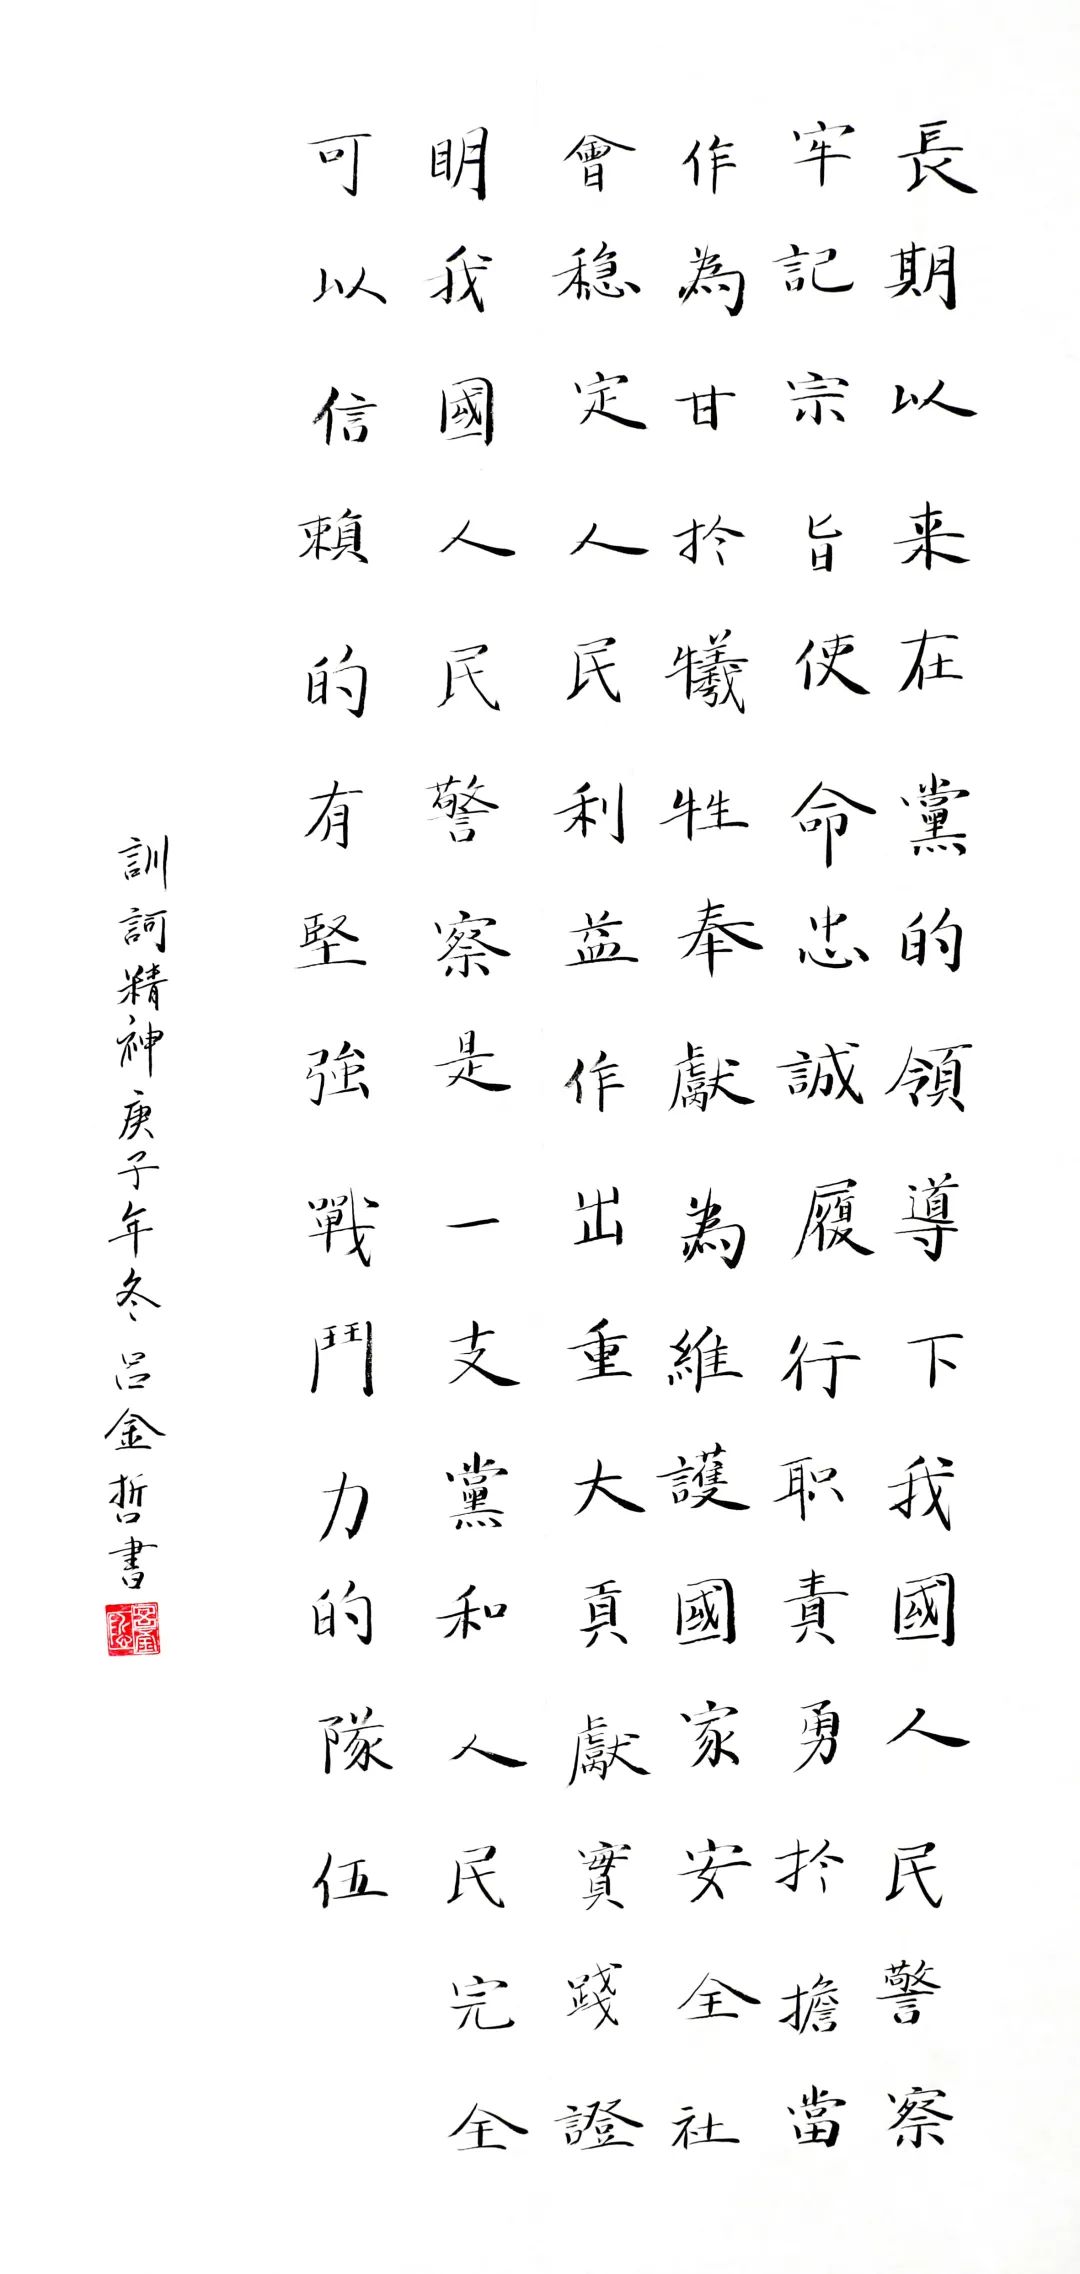 長期以来在黨的領導下我國人民警察
牢記宗旨使命忠誠履行职責勇扵擔當
作為甘扵犧牲奉獻為維護國家安全社
會穏定人民利益作出重大貢獻實踐證
明我國人民警察是一支黨和人民完全
可以信賴的有堅強戰鬥力的隊伍
訓詞精神庚子年冬呂金哲書